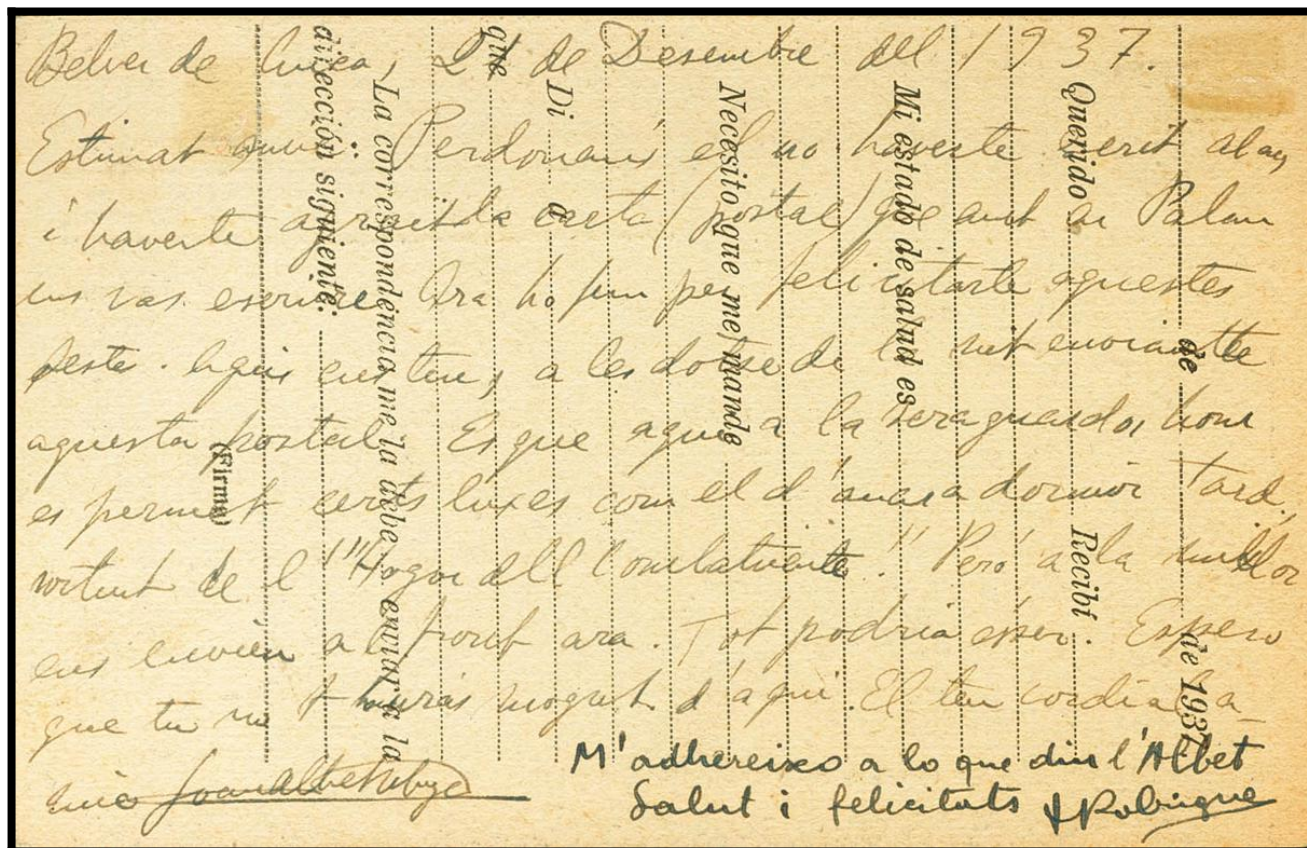 Belver de Cinca, 2 de Desembre del 1937.
Estimat amic: Perdonaràs el no haverte escrit abans
i haverte agraït la carta (postal) que amb en Palau
ens vas escriure. Ara ho fem per felicitarte aquestes
festes. Aquí ens tens, a les dotze de la nit enviantte
aquesta postal. Es que aquí a la reraguarda, hom
es permet certs luxes com el d'anar a dormir tard,
sortint de l'"Hogar del Combatiente". Però a la millor
ens envien al front ara. Tot podria ésser. Espero
que tu no t'hauràs mogut d'aquí. El teu cordial a-
mic Joan Albet
M'adhereixo a lo que diu l'Albet
Salut i felicitats
de de 1937
Querido Recibí
Mi estado de salud es
Necesito que me mande
Di a
que
La correspondencia me la debe enviar a la
dirección siguiente:
(Firma)